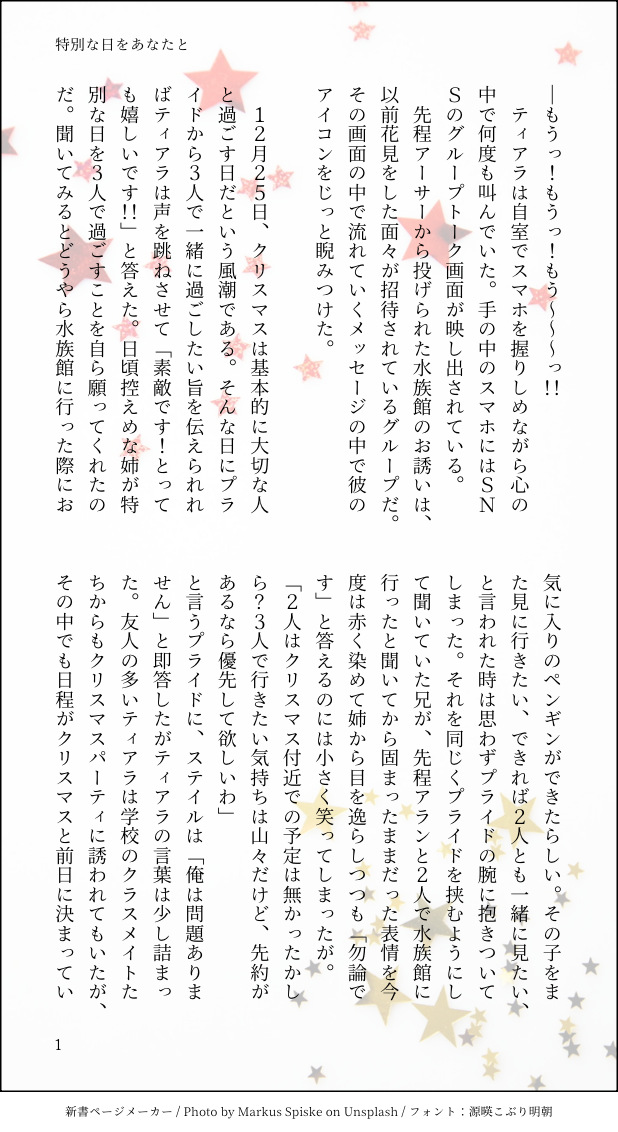 特別な日をあなたと
―もうっ！もうっ！もう～～～っ!!
　ティアラは自室でスマホを握りしめながら心の
中で何度も叫んでいた。手の中のスマホにはＳＮ
Ｓのグループトーク画面が映し出されている。
　先程アーサーから投げられた水族館のお誘いは、
以前花見をした面々が招待されているグループだ。
その画面の中で流れていくメッセージの中で彼の
アイコンをじっと睨みつけた。
　１２月２５日、クリスマスは基本的に大切な人
と過ごす日だという風潮である。そんな日にプラ
イドから３人で一緒に過ごしたい旨を伝えられれ
ばティアラは声を跳ねさせて「素敵です！とって
も嬉しいです!!」と答えた。日頃控えめな姉が特
別な日を３人で過ごすことを自ら願ってくれたの
だ。聞いてみるとどうやら水族館に行った際にお
気に入りのペンギンができたらしい。その子をま
た見に行きたい、できれば２人とも一緒に見たい、
と言われた時は思わずプライドの腕に抱きついて
しまった。それを同じくプライドを挟むようにし
て聞いていた兄が、先程アランと２人で水族館に
行ったと聞いてから固まったままだった表情を今
度は赤く染めて姉から目を逸らしつつも「勿論で
す」と答えるのには小さく笑ってしまったが。
「２人はクリスマス付近での予定は無かったかし
ら？３人で行きたい気持ちは山々だけど、先約が
あるなら優先して欲しいわ」
と言うプライドに、ステイルは「俺は問題ありま
せん」と即答したがティアラの言葉は少し詰まっ
た。友人の多いティアラは学校のクラスメイトた
ちからもクリスマスパーティに誘われてもいたが、
その中でも日程がクリスマスと前日に決まってい
1
新書ページメーカー / Photo by Markus Spiske on Unsplash / フォント：源暎こぶり明朝